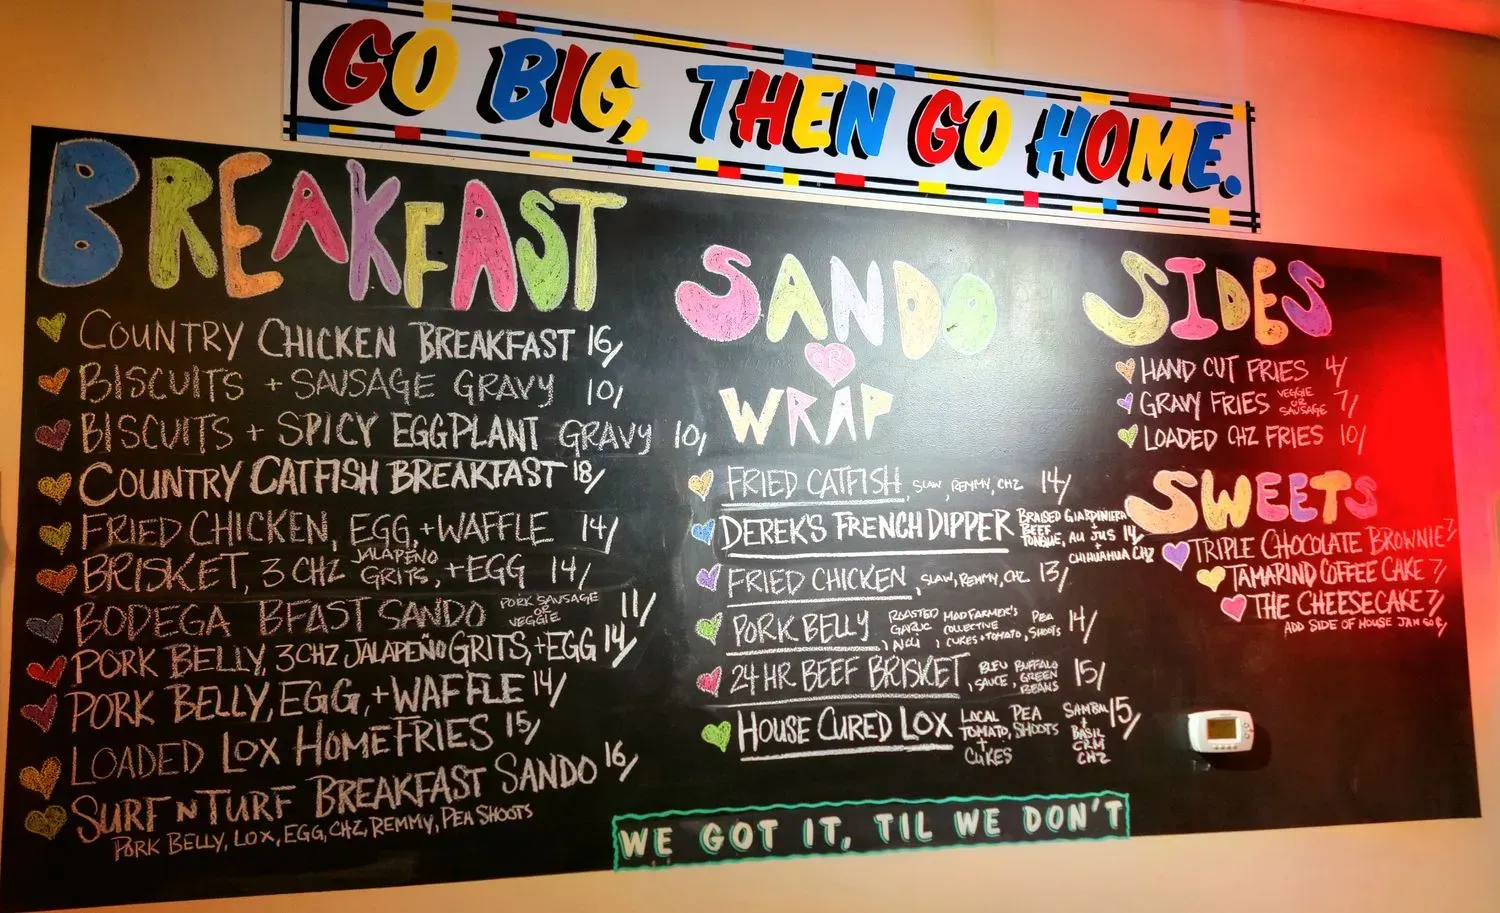 GO BIG, THEN GO HOME.
BREAKFAST
COUNTRY CHICKEN BREAKFAST 16/
BISCUITS + SAUSAGE GRAVY 10/
BISCUITS + SPICY EGGPLANT GRAVY 10/
COUNTRY CATFISH BREAKFAST 18/
FRIED CHICKEN, EGG, + WAFFLE 14/
BRISKET, 3 CHZ JALAPEÑO GRITS, + EGG 14/
BODEGA BFAST SANDO PORK SAUSAGE OR VEGGIE 11/
PORK BELLY, 3 CHZ JALAPEÑO GRITS, + EGG 14/
PORK BELLY, EGG, + WAFFLE 14/
LOADED LOX HOMEFRIES 15/
SURF N TURF BREAKFAST SANDO 16/
PORK BELLY, LOX, EGG, CHZ, REMMY, PEA SHOOTS
SANDO
OR
WRAP
FRIED CATFISH, SLAW, REMMY, CHZ 14/
DEREK'S FRENCH DIPPER BRAISED BEEF TONGUE, GIARDINIERA + AU JUS 14/
CHIHUAHUA CHZ
FRIED CHICKEN, SLAW, REMMY, CHZ 13/
PORK BELLY, ROASTED GARLIC AIOLI, MAD FARMER'S COLLECTIVE CUKES + TOMATO, PEA SHOOTS 14/
24 HR BEEF BRISKET, BLEU SAUCE, BUFFALO GREEN BEANS 15/
HOUSE CURED LOX LOCAL TOMATO, + CUKES PEA SHOOTS SAMBAL + BASIL CRM CHZ 15/
SIDES
HAND CUT FRIES 4/
GRAVY FRIES VEGGIE OR SAUSAGE 7/
LOADED CHZ FRIES 10/
SWEETS
TRIPLE CHOCOLATE BROWNIE 7/
TAMARIND COFFEE CAKE 7/
THE CHEESECAKE 7/
ADD SIDE OF HOUSE JAM 60¢
WE GOT IT, TIL WE DON'T